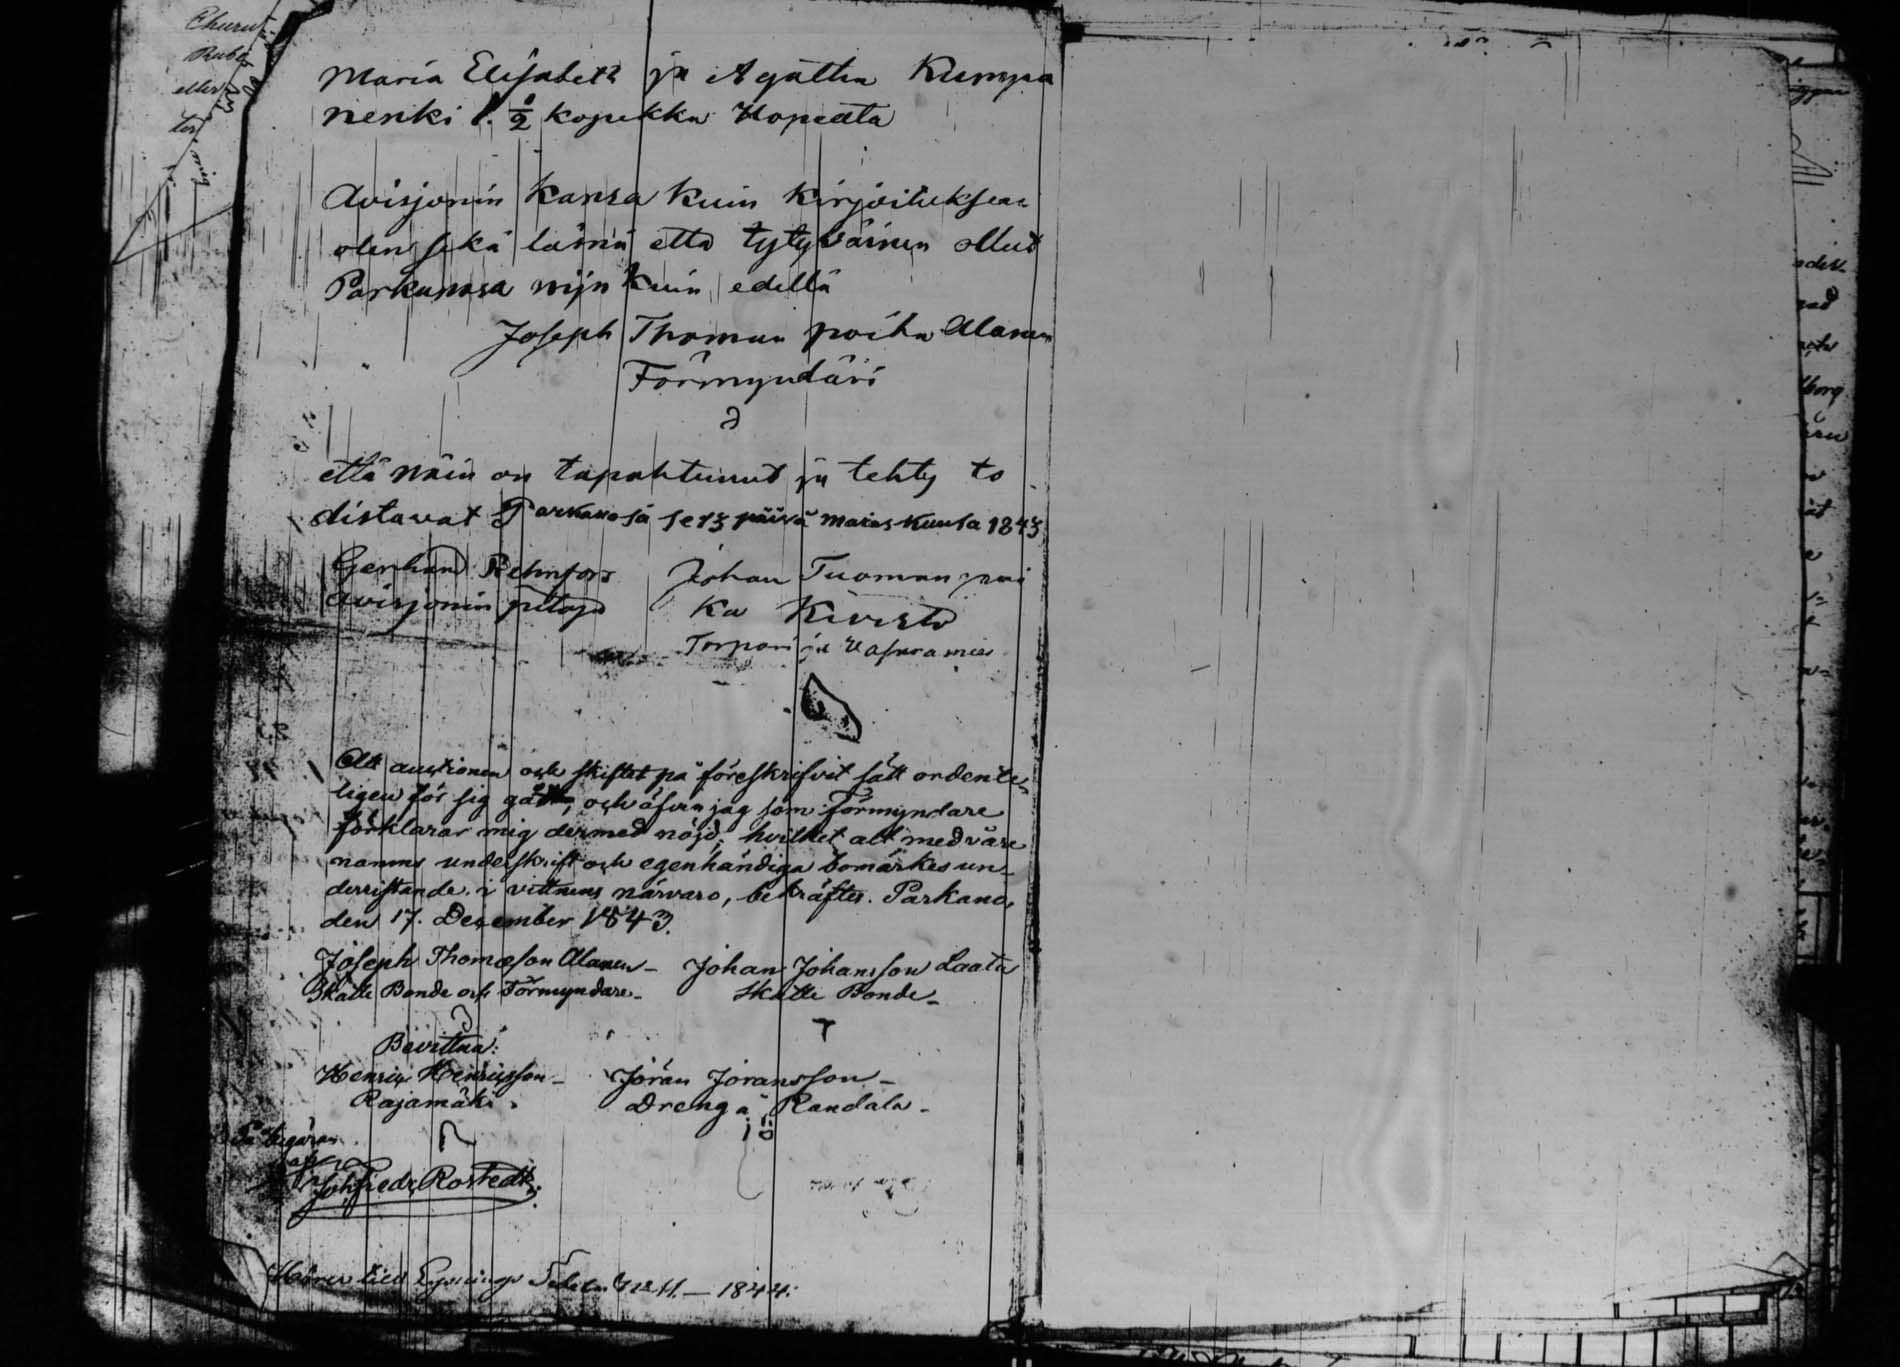 Maria Elisabeth ja Agatha Kumpa
nenki 1. 1/2 kopekka Hopeata
Avisjonin kansa kuin kirjoituksen
olen sekä läsnä että tytyväinen ollut
Parkanosa nijn kuin edellä
Joseph Thoman poika Alanen
Förmyndäri
että näin on tapahtunut ja tehty to
distavat Parkanosa se 13 päivä marraskuusa 1843
Gerhard Rehnfors Johan Tuoman poi
avisjonin pitäjä ka Kivistö
Torpari ja Vasara mies
Att auctionen och skiftet på föreskrifvit sätt ordente
ligen för sig gått, och äfven jag som Förmyndare
förklarar mig dermed nöjd, hvilket alt med våre
namns underskrift och egenhändiga bomärkes un-
derristande i vittnens närvaro, bekräftes. Parkano
den 17. December 1843.
Joseph Thomæson Alanen- Johan Johansson Laata
Skatte Bonde och Förmyndare- Skatte Bonde-
Bevittna:
Henric Henricsson- Jöran Joransson-
Rajamäki. Dreng å Randala-
På begäran
af
Joh Fredr Rostedt
1844.